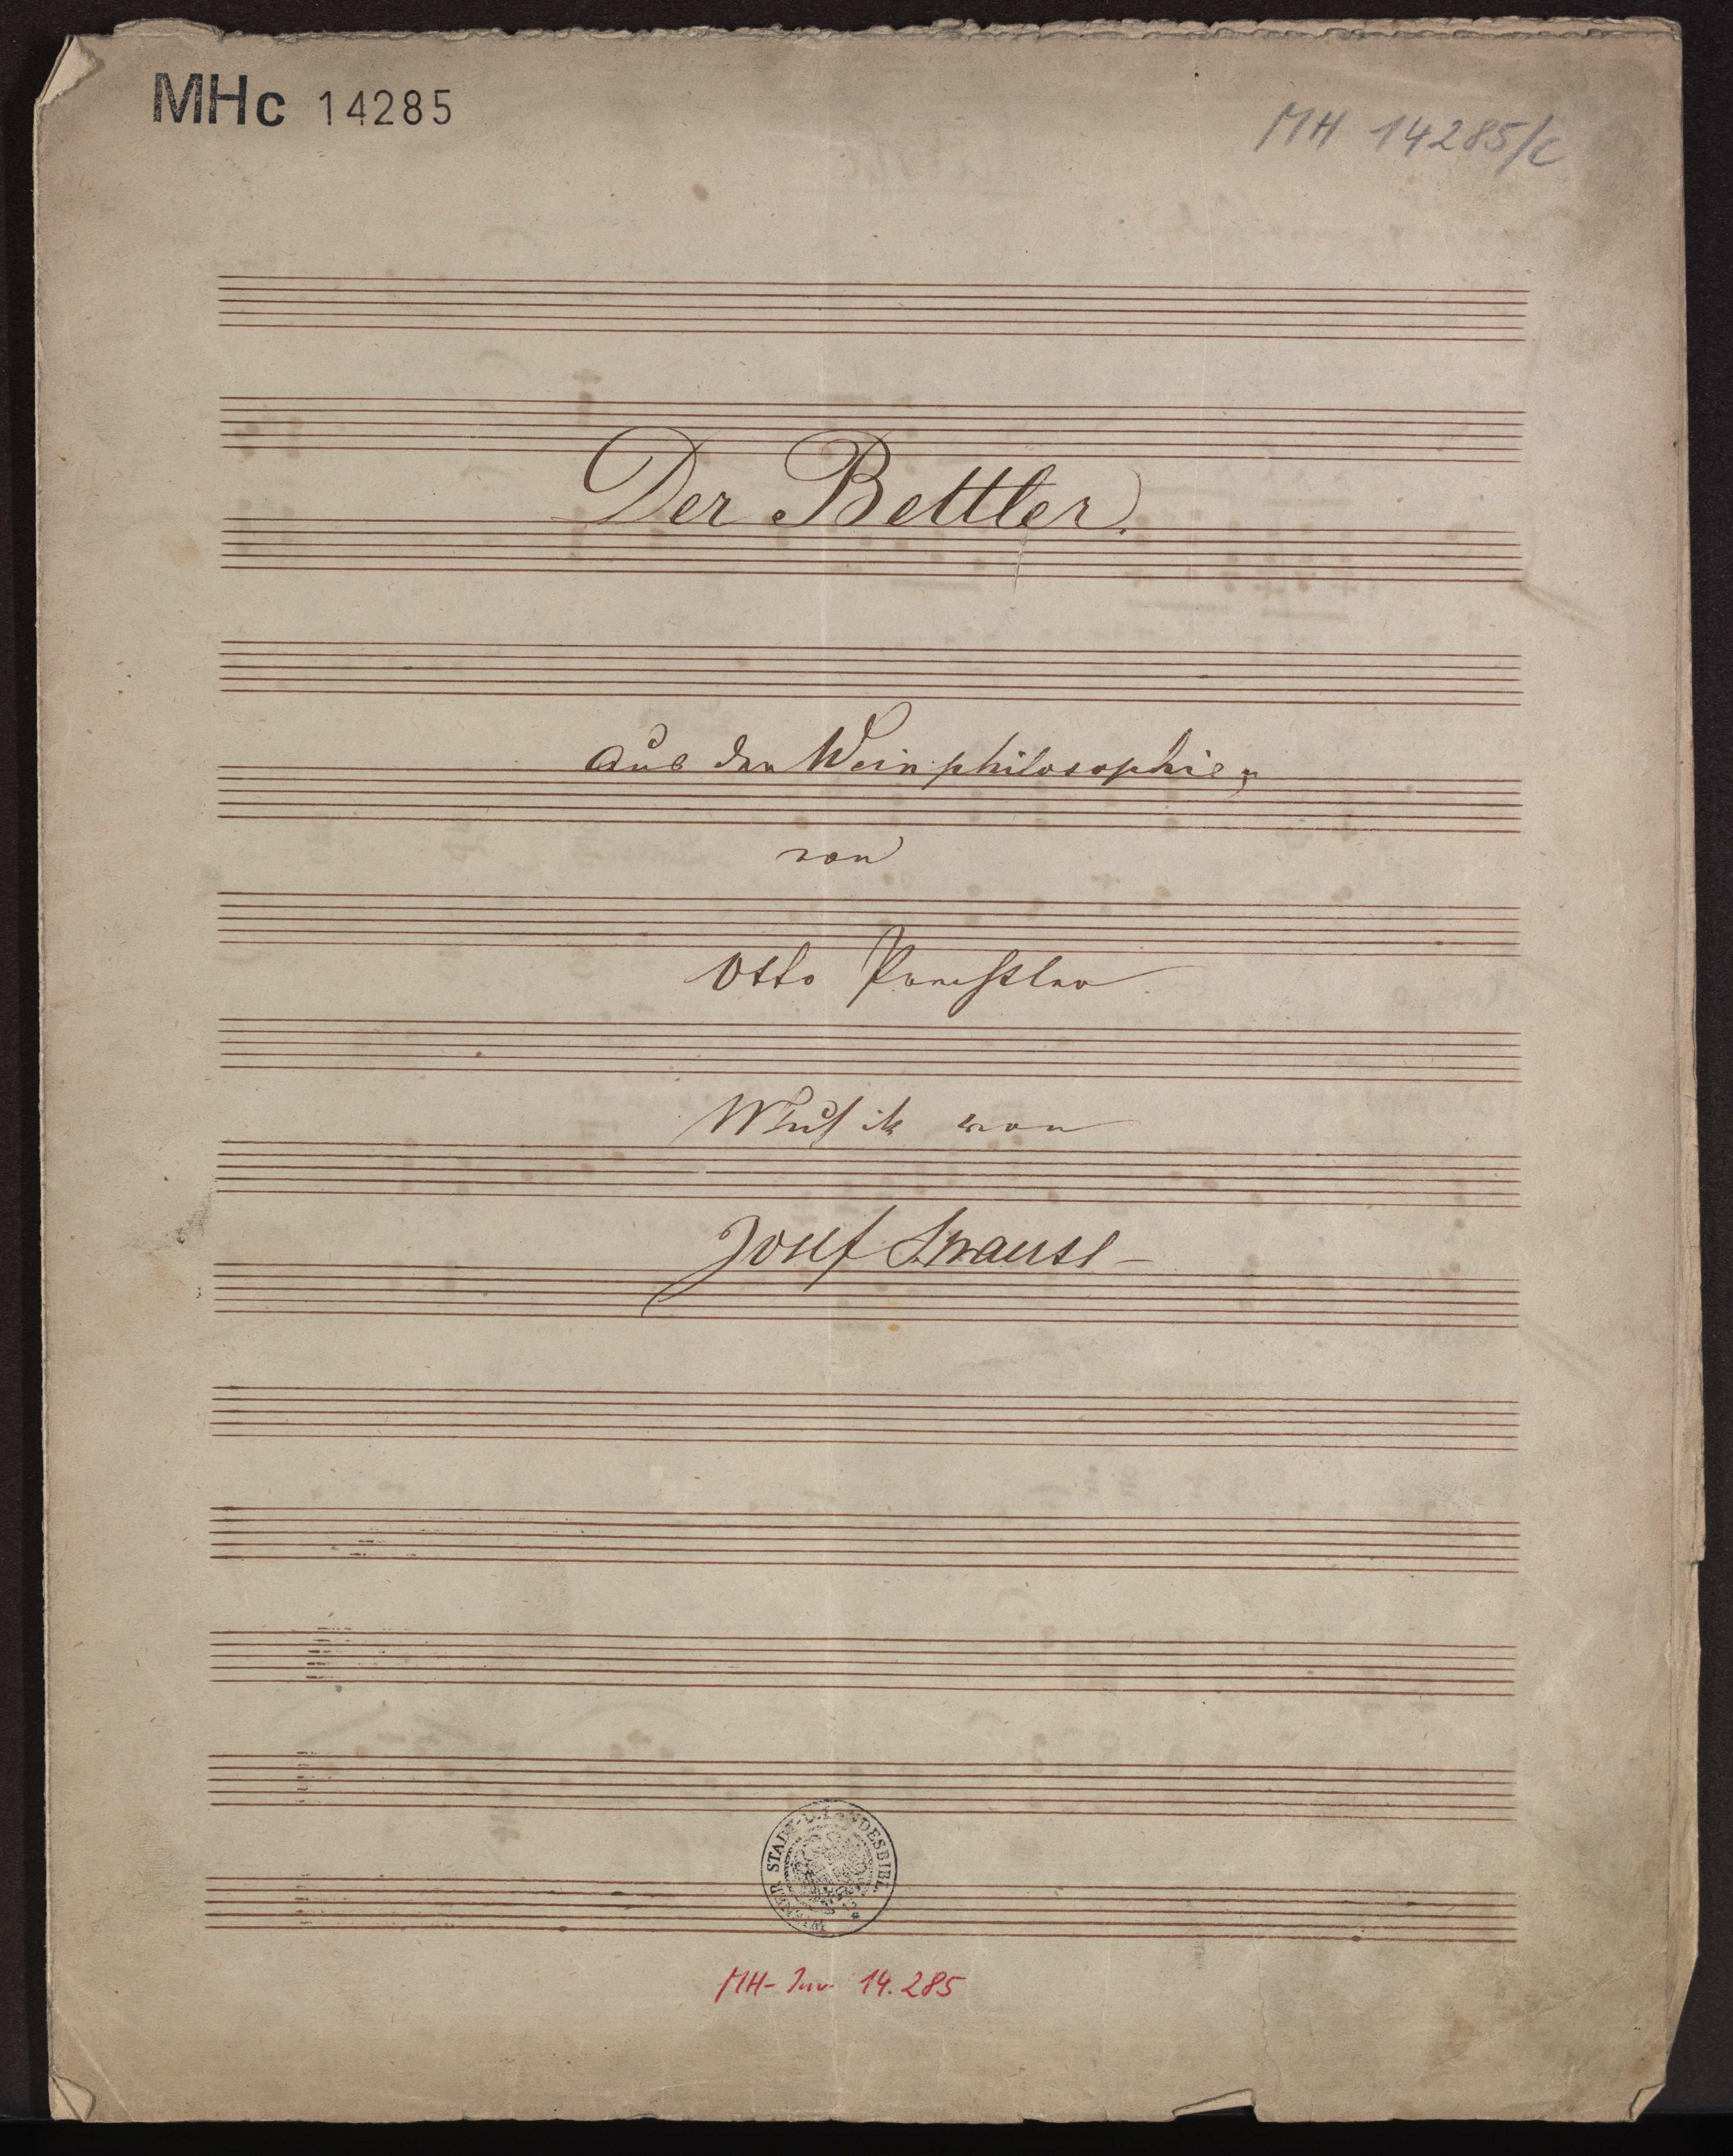 MHc 14285
MH 14285/c
Der Bettler.
Aus den Weinphilosophien
von
Otto Prechtler
Musik von
Josef Strauss
WIENER STADT-U. LANDESBIBL.
MH-Inv. 14.285